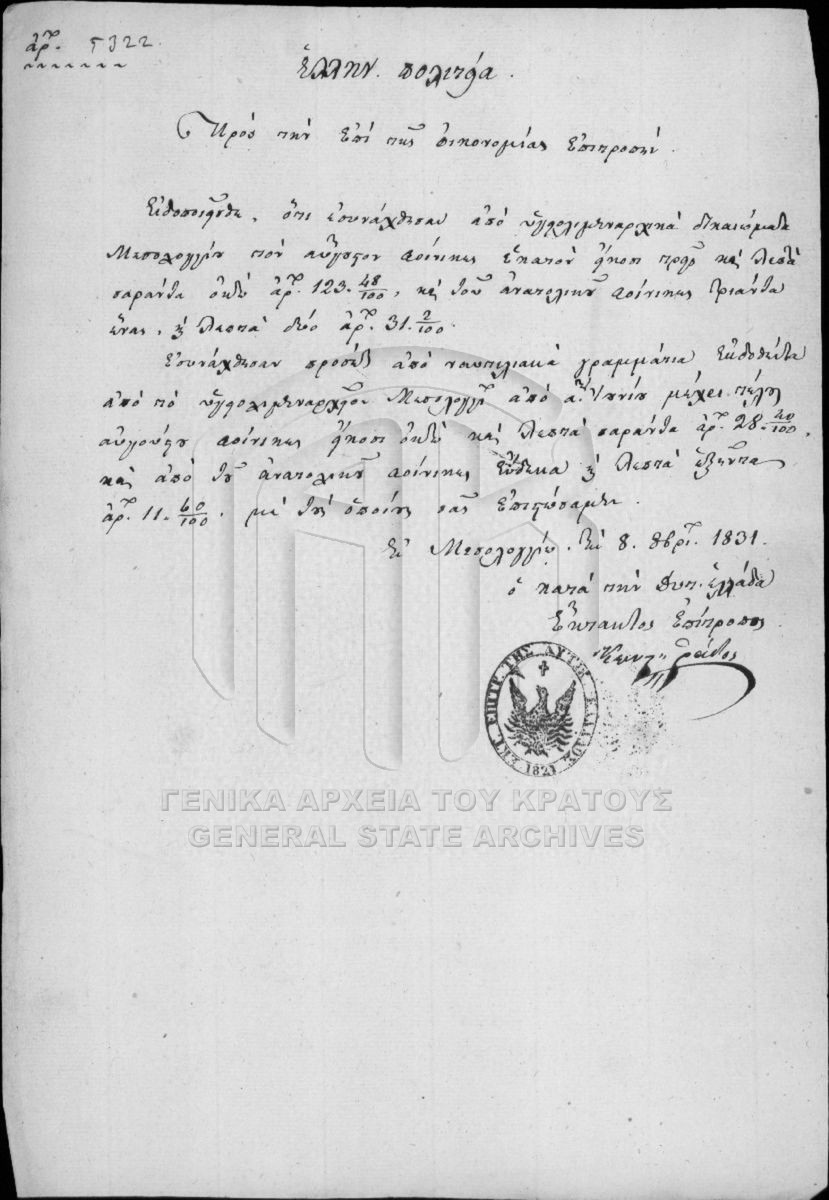 ἀρ. 5322.
ἑλλην. πολιτεία.
Πρὸς τὴν ἐπὶ τῆς οἰκονομίας ἐπιτροπήν.
Εἰδοποιεῖσθε, ὅτι ἐσυνάχθησαν ἀπὸ ὑγειολιμεναρχικὰ δικαιώματα
Μεσολογγίου τὸν αὔγουστον φοίνικες ἑκατὸν εἴκοσι τρεῖς καὶ λεπτὰ
σαράντα ὀκτὼ ἀρ. 123.48/100, καὶ τοῦ ἀνατολικοῦ φοίνικες τριάντα
ἕνας, καὶ λεπτὰ δύο ἀρ. 31.2/100.
Ἐσυνάχθησαν προσέτι ἀπὸ ναυτιλιακὰ γραμμάτια ἐκδοθέντα
ἀπὸ τὸ ὑγειολιμεναρχεῖον Μεσολογγίου ἀπὸ α: Ἰουνίου μέχρι τέλους
αὐγούστου φοίνικες εἴκοσι ὀκτὼ καὶ λεπτὰ σαράντα ἀρ. 28.40/100,
καὶ ἀπὸ τοῦ ἀνατολικοῦ φοίνικες ἕνδεκα καὶ λεπτὰ ἑξῆντα
ἀρ. 11.60/100. μὲ τοὺς ὁποίους σᾶς
Ἐν Μεσολογγίῳ. τῇ 8. 8βρί. 1831.
ὁ κατὰ τὴν Δυτ. ἑλλάδα
Ἔκτακτος Ἐπίτροπος
ΕΚΤ. ΕΠΙΤΡ. ΤΗΣ ΔΥΤΙΚ. ΕΛΛΑΔΟΣ
1821
ΓΕΝΙΚΑ ΑΡΧΕΙΑ ΤΟΥ ΚΡΑΤΟΥΣ
GENERAL STATE ARCHIVES